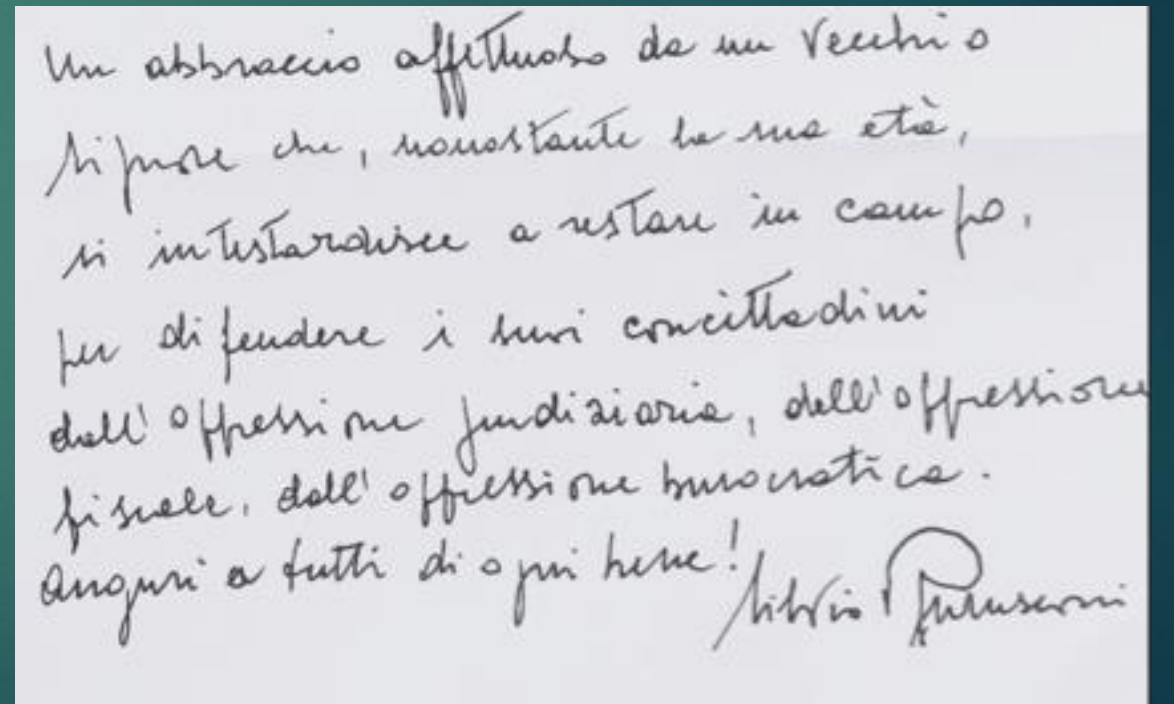 Un abbraccio affettuoso da un vecchio
signore che, nonostante la sua età,
si intestardisce a restare in campo,
per difendere i suoi concittadini
dall'oppressione giudiziaria, dall'oppressione
fiscale, dall'oppressione burocratica.
Auguri a tutti di ogni bene!
Silvio Berlusconi